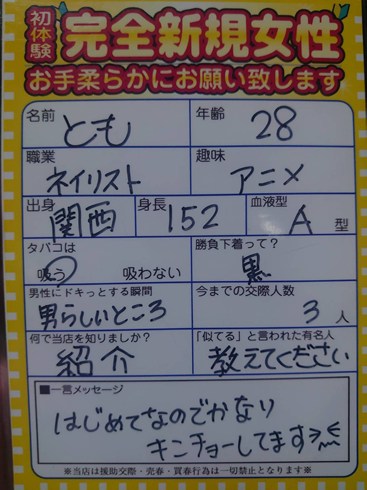 初体験
完全新規女性
お手柔らかにお願い致します
名前 とも
年齢 28
職業 ネイリスト
趣味 アニメ
出身 関西
身長 152
血液型 A 型
タバコは 吸う 吸わない
勝負下着って? 黒
男性にドキっとする瞬間 男らしいところ
今までの交際人数 3 人
何で当店を知りましたか? 紹介
「似てる」と言われた有名人 教えてください
■一言メッセージ
はじめてなのでかなり
キンチョーしてます
※当店は援助交際・売春・買春行為は一切禁止となります※